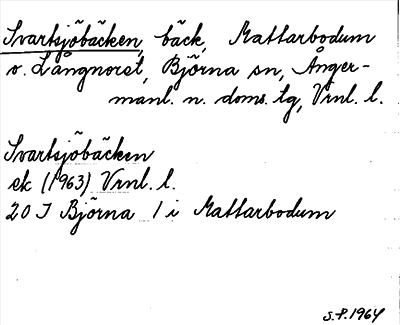 Svartsjöbäcken, bäck, Mattarbodum
o. Långnoret, Björna sn, Ånger-
manl. n. doms. lg, Vrnl. l.
Svartsjöbäcken
ek (1963) Vrnl. l.
20 J Björna 1 i Mattarbodum
S.P. 1964